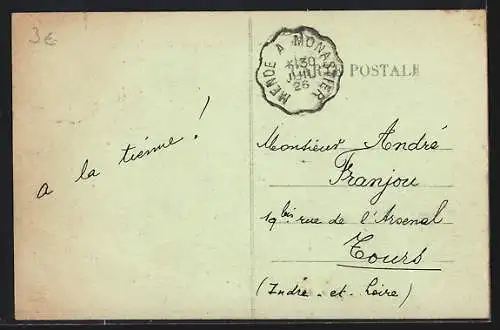 3€
MENDE A MONASTIER
30
JUIL
26
CARTE POSTALE
a la tienne !
Monsieur André
Franjou
19 bis rue de l'Arsenal
Tours
(Indre-et-Loire)